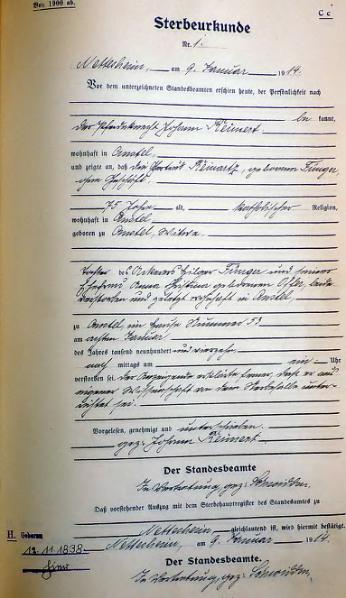 Von 1900 ab.
C c
Sterbeurkunde
Nr. 1.
Nettersheim, am 9. Januar 1914.
Vor dem unterzeichneten Standesbeamten erschien heute, der Persönlichkeit nach
be kannt,
der Johann Reinert
wohnhaft in
und zeigte an, daß Gertrud Reinartz, geborene Finger,
ohne Geschäft
75 Jahre alt, katholischer Religion,
wohnhaft in
geboren zu Witwe
Tochter des Ackerers Hilger Finger und seiner
Ehefrau Anna geborenen beide
verstorben und zuletzt wohnhaft in
zu im Hause Nummer 53
am Januar
des Jahres tausend neunhundert und vierzehn
nach mittags um ein Uhr
verstorben sei. Der Anzeigende erklärte ferner, daß er aus
eigener Wissenschaft von dem Sterbefalle unter-
richtet sei.
Vorgelesen, genehmigt und unterschrieben
gez: Johann Reinert
Der Standesbeamte
In Vertretung, gez:
Daß vorstehender Auszug mit dem Sterbehauptregister des Standesamtes zu
Nettersheim gleichlautend ist, wird hiermit bestätigt.
H. Geboren
12.11.1838
Nettersheim, am 9. Januar 1914.
Der Standesbeamte.
In Vertretung, gez: